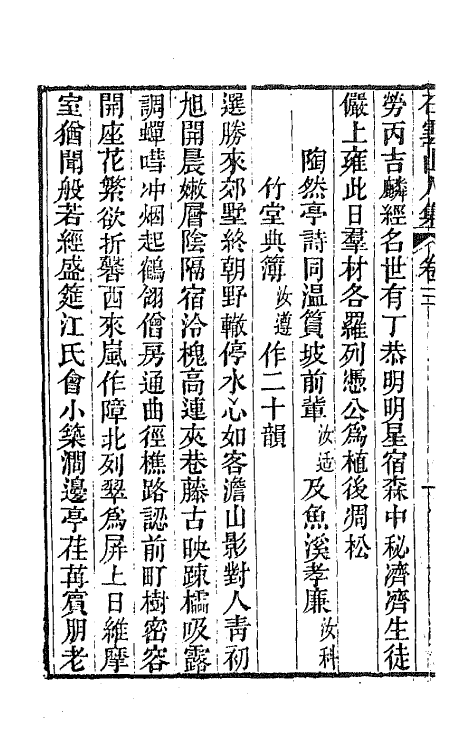 石雲山人集 卷三
勞丙吉麟經名世有丁恭明明星宿森中秘濟濟生徒
儼上雍此日羣材各羅列憑公爲植後凋松
陶然亭詩同溫篔坡前輩汝适及魚溪孝廉汝科
竹堂典簿汝遵作二十韻
選勝來郊墅終朝野轍停水心如客澹山影對人靑初
旭開晨嫩層陰隔宿泠槐高連夾巷藤古映疎櫺吸露
調蟬噆冲烟起鶴翎僧房通曲徑樵路認前町樹密容
開座花繁欲折罄西來嵐作障北列翠爲屏上日維摩
室猶聞般若經盛筵江氏會小築澗邊亭荏苒賓朋老